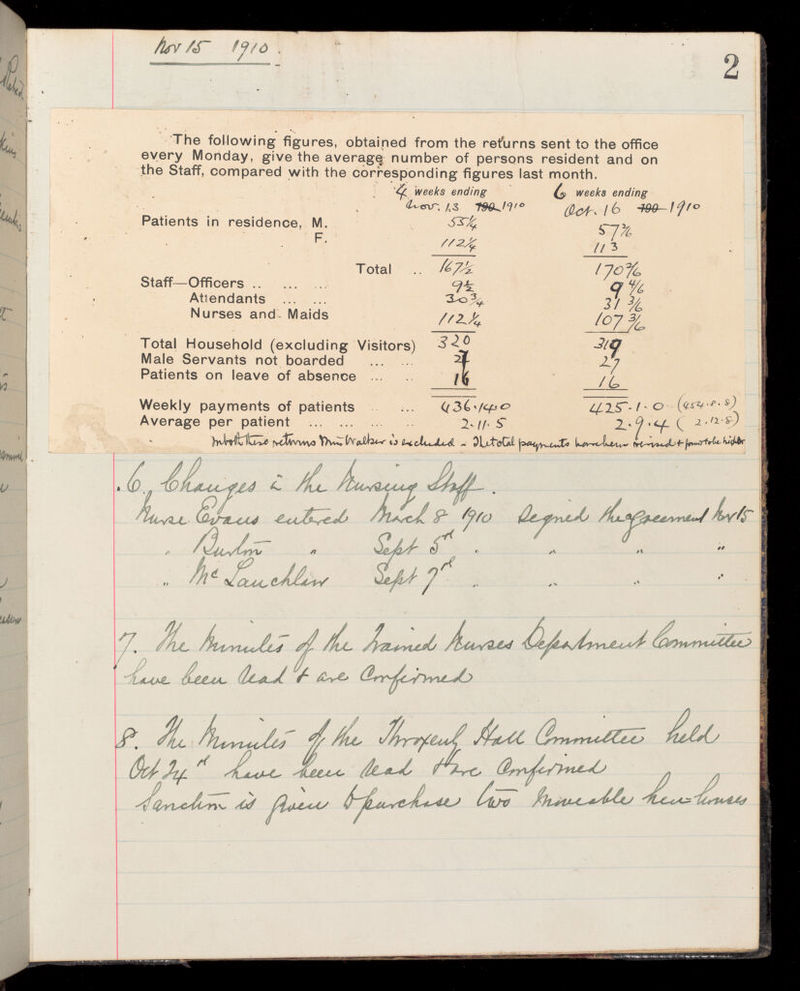 Nov 15 1910.
2
The following figures, obtained from the returns sent to the office
every Monday, give the average number of persons resident and on
the Staff, compared with the corresponding figures last month.
4 weeks ending 6 weeks ending
Nov. 13 190 1910 Oct. 16 190 1910
Patients in residence, M. 55¼ 57 2/6
F. 112¼ 113
Total .. 167½ 170 2/6
Staff—Officers .. ... ... 9½ 9 4/6
Attendants ... ... 30¾ 31 3/6
Nurses and Maids 112¼ 107 3/6
Total Household (excluding Visitors) 320 319
Male Servants not boarded ... ... 27 27
Patients on leave of absence ... ... 16 16
Weekly payments of patients ... 436.14.0 425.1.0 (454.8.8)
Average per patient ... ... ... ... ... 2.11.5 2.9.4 (2.12.8)
In both these returns Miss Walker is excluded – The total payments have been revised & found to be higher
6. Changes in the Nursing Staff.
Nurse Evans entered March 8 1910 signed the agreement Nov 15
" Burton " Sept 5th " " " "
" McLauchlan Sept 7th " " " "
7. The Minutes of the Trained Nurses Department Committee
have been read & are confirmed
8. The Minutes of the Throxenby Hall Committee held
Oct 24th have been read & are confirmed
Sanction is given to purchase two moveable hen-houses